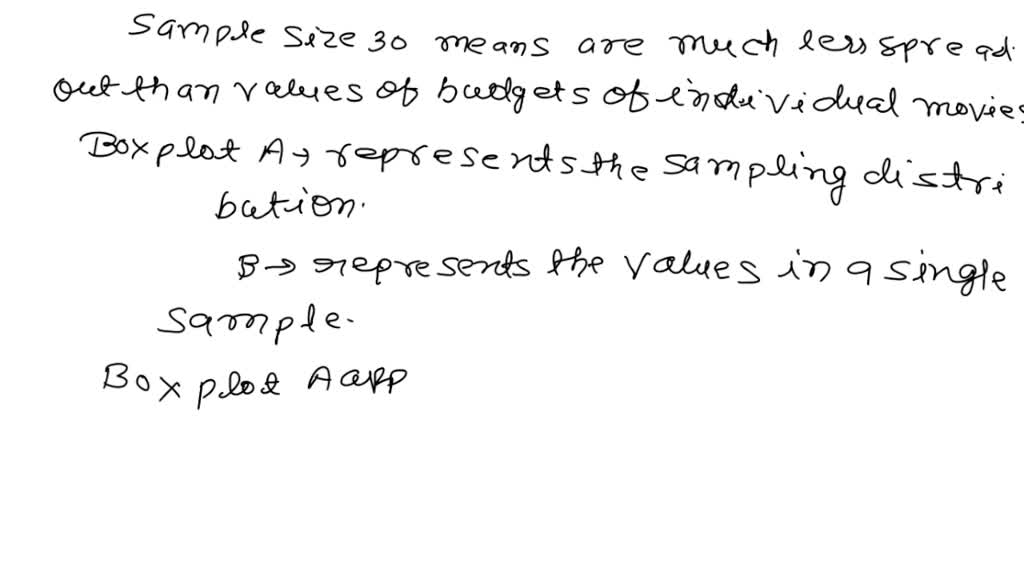 Sample size 30 means are much less spread
out than values of budgets of individual movies
Boxplot A → represents the sampling distri
bution.
B → represents the values in a single
sample.
Boxplot A app